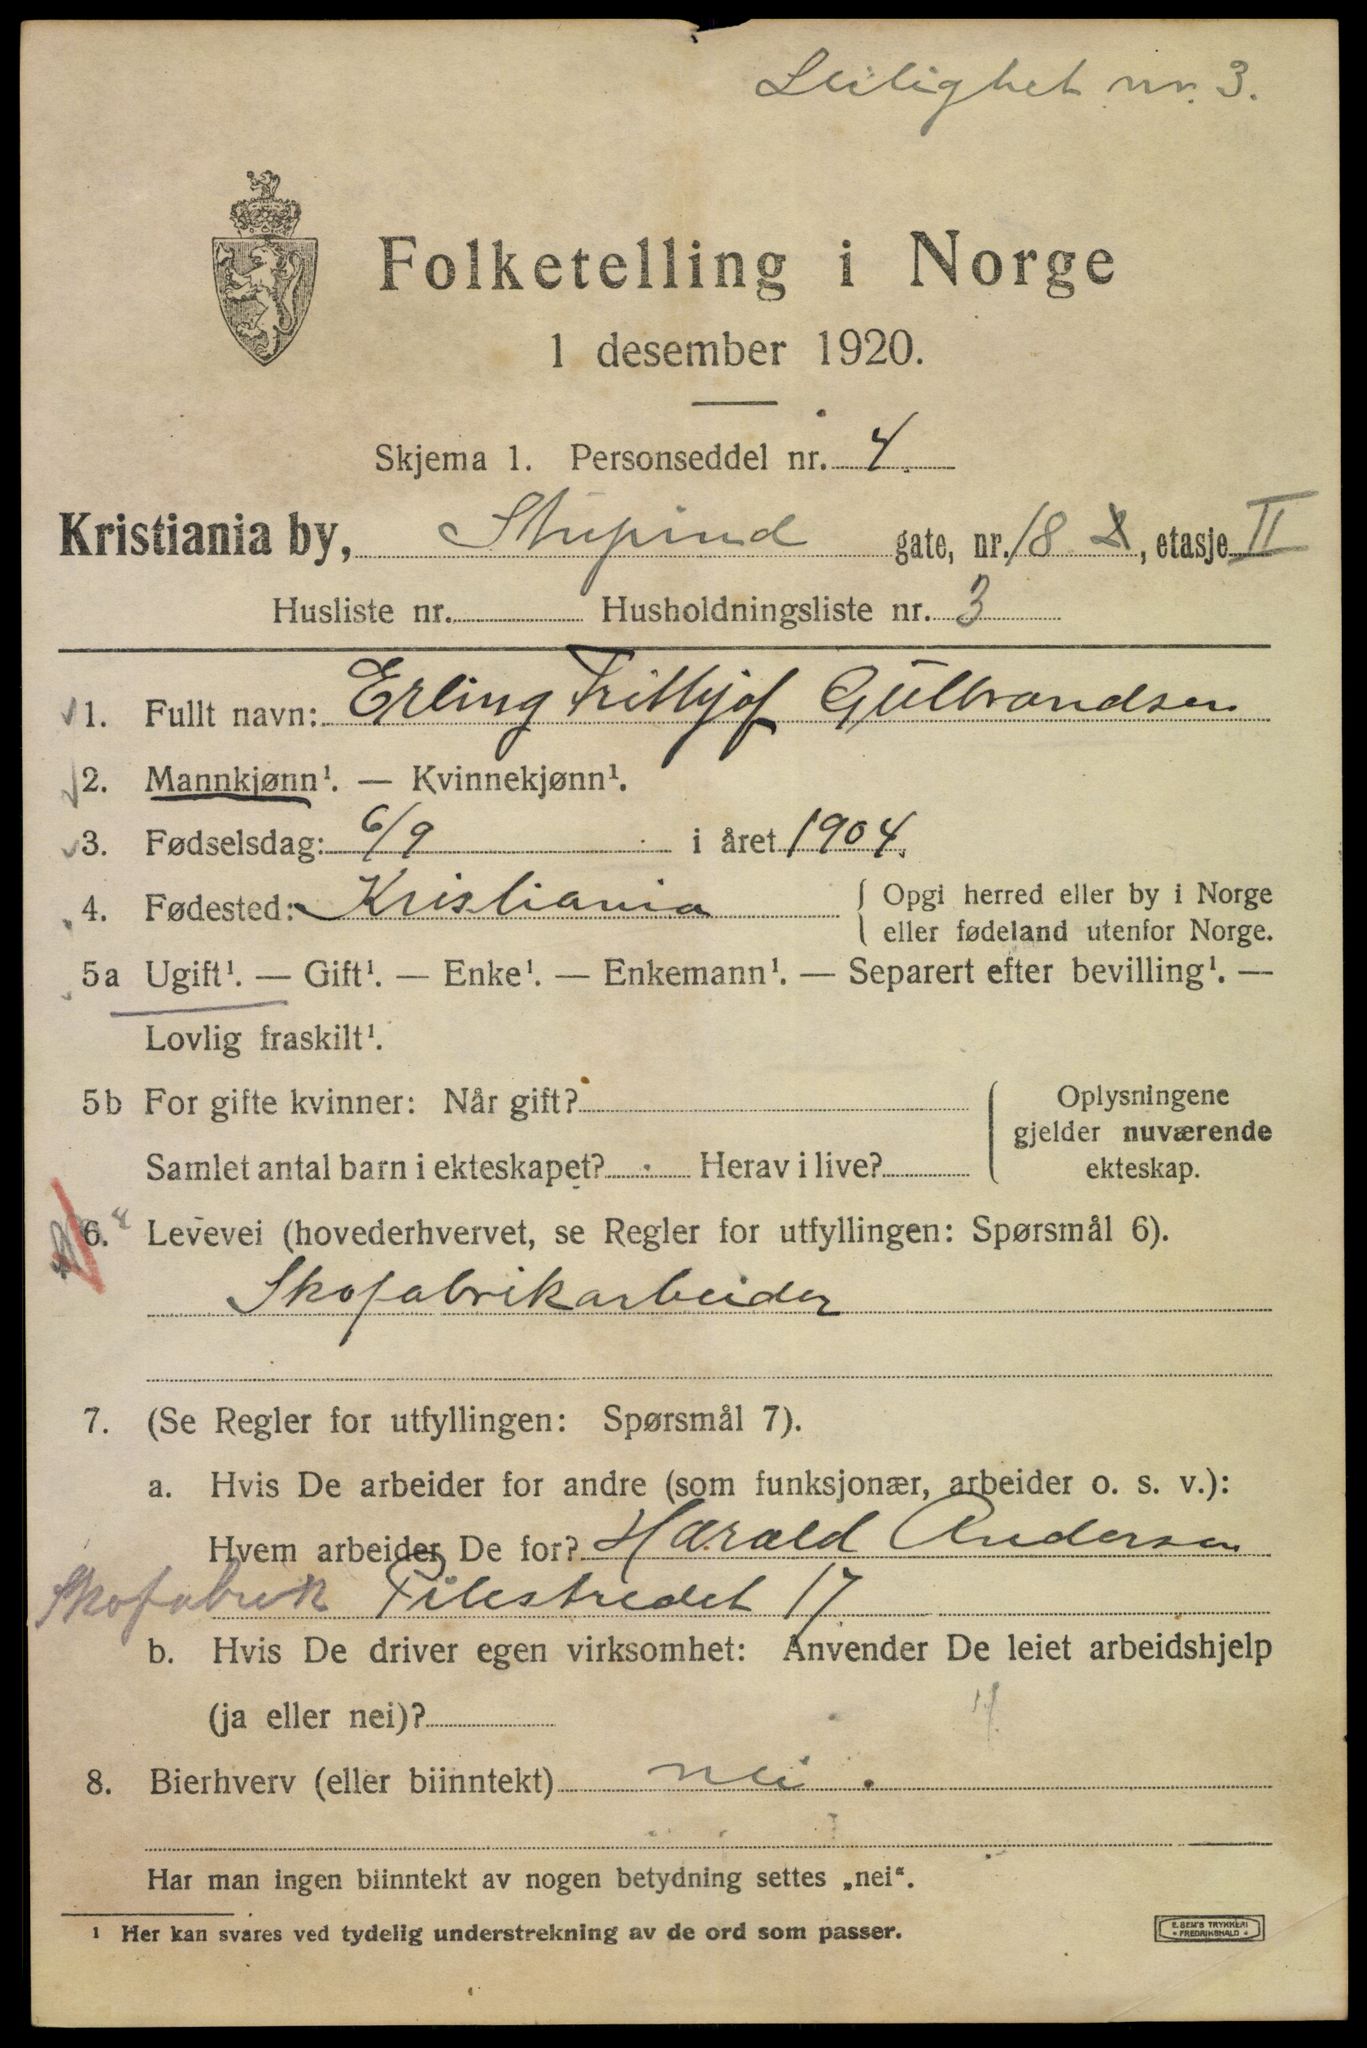 Leilighet nr. 3.
Folketelling i Norge
1 desember 1920.
Skjema 1. Personseddel nr. 4.
Kristiania by, Stupind gate, nr. 18, etasje II
Husliste nr. Husholdningsliste nr. 3
1. Fullt navn: Erling Frithjof Gulbrandsen
2. Mannkjønn¹. — Kvinnekjønn¹.
3. Fødselsdag: 6/9 i året 1904.
4. Fødested: Kristiania { Opgi herred eller by i Norge
eller fødeland utenfor Norge.
5a Ugift¹. — Gift¹. — Enke¹. — Enkemann¹. — Separert efter bevilling¹. —
Lovlig fraskilt¹.
5b For gifte kvinner: Når gift? Oplysningene
gjelder nuværende
Samlet antal barn i ekteskapet? Herav i live? ekteskap.
6. Levevei (hovederhvervet, se Regler for utfyllingen: Spørsmål 6).
Skofabrikarbeider
7. (Se Regler for utfyllingen: Spørsmål 7).
a. Hvis De arbeider for andre (som funksjonær, arbeider o. s. v.):
Hvem arbeider De for? Harald Andersen
Skofabrik Pilestredet 17
b. Hvis De driver egen virksomhet: Anvender De leiet arbeidshjelp
(ja eller nei)?
8. Bierhverv (eller biinntekt) nei.
Har man ingen biinntekt av nogen betydning settes „nei“.
¹ Her kan svares ved tydelig understrekning av de ord som passer.
E. SEM'S TRYKKERI
FREDRIKSHALD